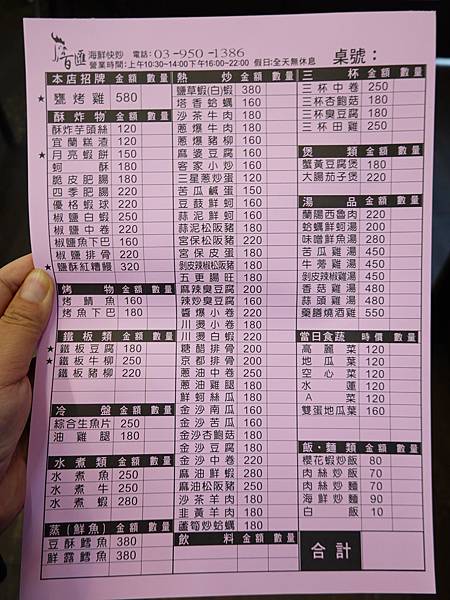 海鮮快炒 電話：03-950-1386
營業時間：上午10:30~14:00下午16:00~22:00 假日：全天無休息
桌號：
本店招牌 金額 數量
★ 甕烤雞 580
酥炸物 金額 數量
酥炸芋頭絲 120
宜蘭糕渣 120
★ 月亮蝦餅 150
蚵酥 180
脆皮肥腸 180
四季肥腸 220
優格蝦球 220
椒鹽白蝦 250
椒鹽中卷 220
椒鹽魚下巴 160
椒鹽排骨 220
★ 鹽酥紅糟鰻 320
烤物 金額 數量
烤鯖魚 160
烤魚下巴 180
鐵板類 金額 數量
★ 鐵板豆腐 180
★ 鐵板牛柳 250
鐵板豬柳 220
冷盤 金額 數量
綜合生魚片 250
油雞腿 180
水煮類 金額 數量
水煮魚 250
水煮牛 250
水煮蝦 280
蒸(鮮魚) 金額 數量
豆酥鱈魚 380
鮮露鱈魚 380
熱炒 金額 數量
鹽草蝦(白)蝦 380
塔香蛤蠣 160
沙茶牛肉 180
蔥爆牛肉 180
蔥爆豬柳 160
麻婆豆腐 160
客家小炒 160
三星蔥炒蛋 120
苦瓜鹹蛋 150
豆豉鮮蚵 160
蒜泥鮮蚵 160
蒜泥松阪豬 180
宮保松阪豬 220
宮保皮蛋 180
剝皮辣椒松阪豬 180
五更腸旺 180
麻辣臭豆腐 200
辣炒臭豆腐 160
醬爆小卷 220
川燙小卷 180
川燙白蝦 220
糖醋排骨 200
京都排骨 200
蔥油中卷 250
蔥油雞腿 180
鮮蚵絲瓜 180
金沙南瓜 160
金沙苦瓜 160
金沙杏鮑菇 180
金沙豆腐 180
金沙中卷 220
麻油鮮蝦 280
麻油松阪豬 250
沙茶羊肉 180
韭黃羊肉 180
蘆筍炒蛤蠣 180
飲料 金額 數量
三杯 金額 數量
三杯中卷 250
三杯杏鮑菇 180
三杯臭豆腐 180
三杯田雞 250
煲類 金額 數量
蟹黃豆腐煲 180
大腸茄子煲 220
湯品 金額 數量
蘭陽西魯肉 220
蛤蠣鮮蚵湯 200
味噌鮮魚湯 280
苦瓜雞湯 450
牛蒡雞湯 450
剝皮辣椒雞湯 480
香菇雞湯 480
蒜頭雞湯 480
藥膳燒酒雞 550
當日食蔬 時價 數量
高麗菜 120
地瓜葉 120
空心菜 120
水蓮 120
A菜 120
雙蛋地瓜葉 160
飯、麵類 金額 數量
櫻花蝦炒飯 80
肉絲炒飯 70
肉絲炒麵 70
海鮮炒麵 90
白飯 10
合計